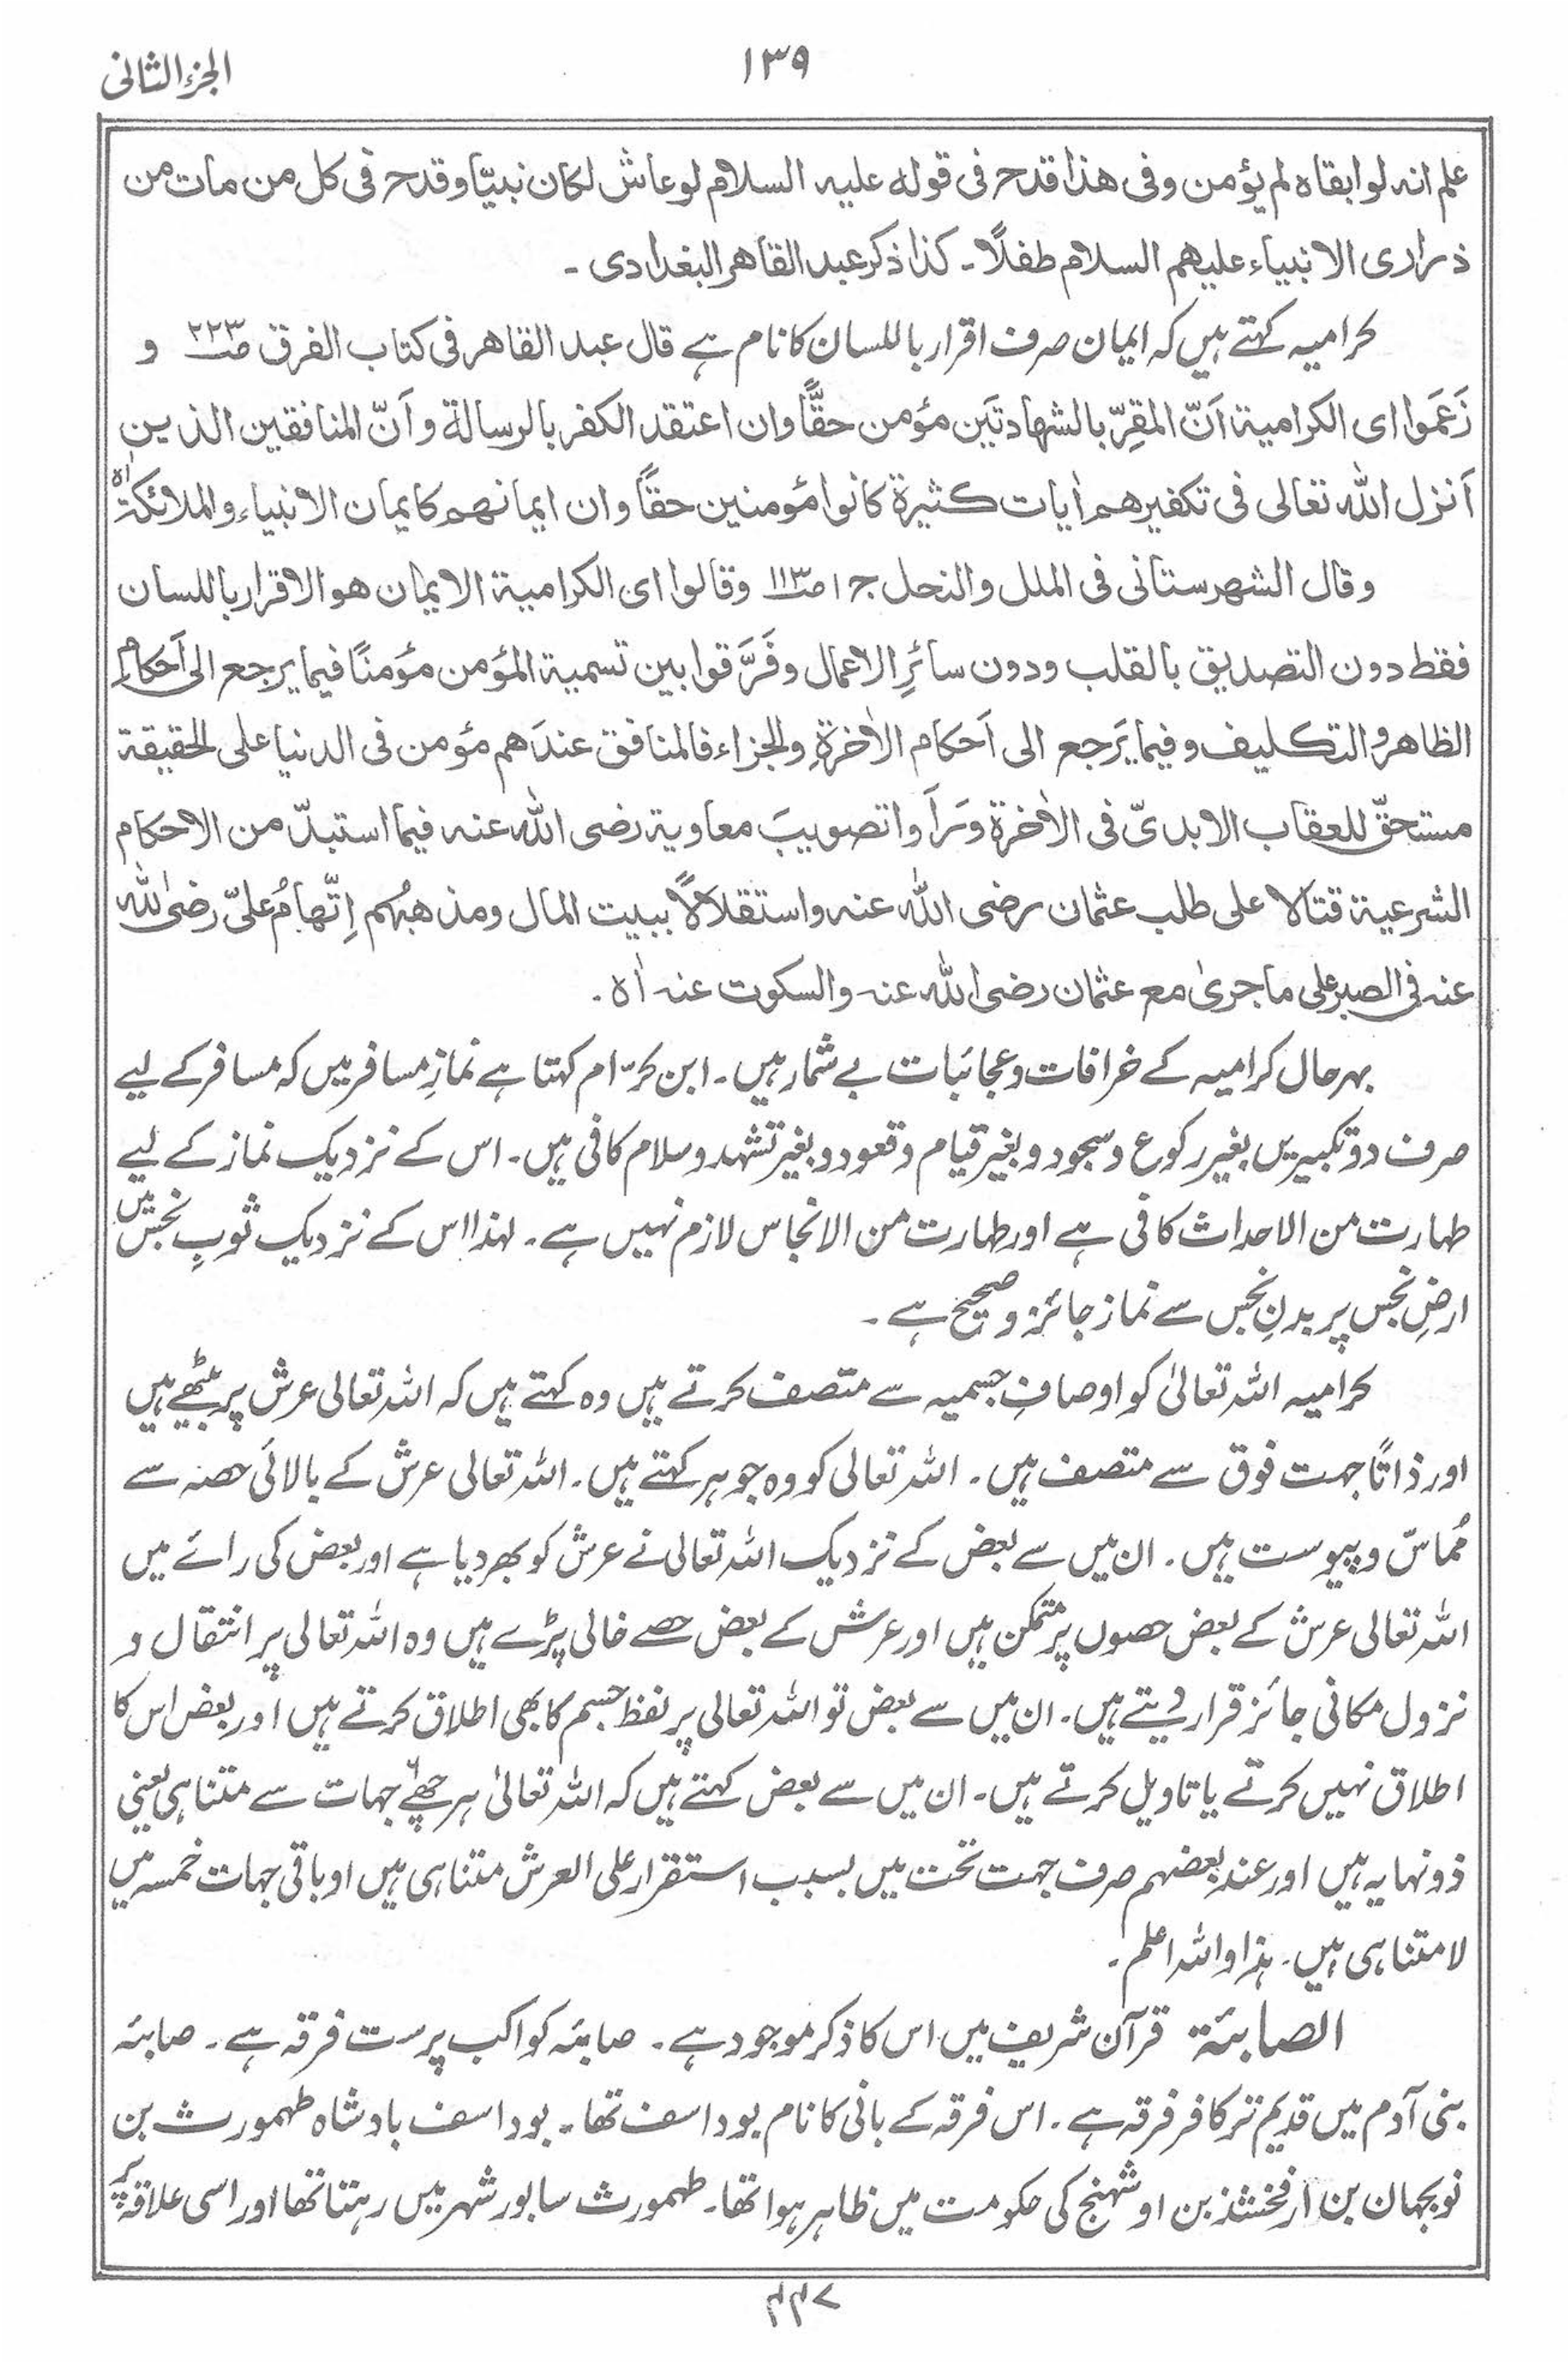 الجزء الثانی
۱۳۹
علم انہ لو ابقاہ لم یؤمن وفی ھذا قدح فی قولہ علیہ السلام لو عاش لکان نبیّا وقدح فی کل من مات من
ذراری الانبیاء علیھم السلام طفلًا۔ کذا ذکر عبد القاھر البغدادی۔
کرامیہ کہتے ہیں کہ ایمان صرف اقرار باللسان کا نام ہے قال عبد القاھر فی کتاب الفرق ص۲۲۳ و
زَعَمَوا ای الکرامیۃ اَنّ المقِرّ بالشھادتَین مؤمن حقًّا وان اعتقد الکفر بالرسالۃ و اَنّ المنافقین الذین
اَنزل اللہ تعالی فی تکفیرھم اٰیات کثیرۃ کانوا مؤمنین حقاً و ان ایمانھم کایمان الانبیاء والملائکۃ اٰہ
وقال الشھرستانی فی الملل والنحل ج۱ ص۱۱۳ وقالوا ای الکرامیۃ الایمان ھو الاقرار باللسان
فقط دون التصدیق بالقلب ودون سائرِ الاعمال وفَرَّقوا بین تسمیۃ المؤمن مؤمنًا فیما یرجع الی اَحکامِ
الظاھر والتکلیف وفیما یَرجع الی اَحکام الاٰخرۃِ والجزاء فالمنافق عندَھم مؤمن فی الدنیا علی الحقیقۃ
مستحقّ للعقاب الابدیّ فی الاٰخرۃ وَرَاَوا تصویبَ معاویۃ رضی اللہ عنہ فیما استبدّ من الاحکام
الشرعیۃ قتالا علی طلب عثمان رضی اللہ عنہ واستقلالًا ببیت المال ومذھبُہم اِتّھامُ علیّ رضی اللہ
عنہ فی الصبر علی ما جریٰ مع عثمان رضی اللہ عنہ والسکوت عنہ اٰہ۔
بہرحال کرامیہ کے خرافات و عجائبات بے شمار ہیں۔ ابن کرّام کہتا ہے نمازِ مسافر میں کہ مسافر کے لیے
صرف دو تکبیریں بغیر رکوع و سجود و بغیر قیام و قعود و بغیر تشہد و سلام کافی ہیں۔ اس کے نزدیک نماز کے لیے
طہارت من الاحداث کافی ہے اور طہارت من الانجاس لازم نہیں ہے۔ لہذا اس کے نزدیک ثوبِ نجس میں
ارضِ نجس پر بدنِ نجس سے نماز جائز و صحیح ہے۔
کرامیہ اللہ تعالیٰ کو اوصافِ جسمیہ سے متصف کرتے ہیں وہ کہتے ہیں کہ اللہ تعالی عرش پر بیٹھے ہیں
اور ذاتًا جہت فوق سے متصف ہیں۔ اللہ تعالی کو وہ جوہر کہتے ہیں۔ اللہ تعالی عرش کے بالائی حصہ سے
مُماسّ و پیوست ہیں۔ ان میں سے بعض کے نزدیک اللہ تعالی نے عرش کو بھر دیا ہے اور بعض کی رائے میں
اللہ تعالی عرش کے بعض حصوں پر متمکن ہیں اور عرش کے بعض حصے خالی پڑے ہیں وہ اللہ تعالی پر انتقال و
نزول مکانی جائز قرار دیتے ہیں۔ ان میں سے بعض تو اللہ تعالی پر لفظ جسم کا بھی اطلاق کرتے ہیں اور بعض اس کا
اطلاق نہیں کرتے یا تاویل کرتے ہیں۔ ان میں سے بعض کہتے ہیں کہ اللہ تعالیٰ ہر چھے ۶ جہات سے متناہی یعنی
ذو نہایہ ہیں اور عند بعضہم صرف جہت تحت میں بسبب استقرار علی العرش متناہی ہیں او باقی جہات خمسہ میں
لا متناہی ہیں۔ ہذا واللہ اعلم۔
الصابئۃ قرآن شریف میں اس کا ذکر موجود ہے۔ صابئہ کواکب پرست فرقہ ہے۔ صابئہ
بنی آدم میں قدیم تر کافر فرقہ ہے۔ اس فرقہ کے بانی کا نام بوداسف تھا۔ بوداسف بادشاہ طہمورث بن
نوبجہان بن ارفخشذ بن اوشہنج کی حکومت میں ظاہر ہوا تھا۔ طہمورث سابور شہر میں رہتا تھا اور اسی علاقہ پر
۴۴۷